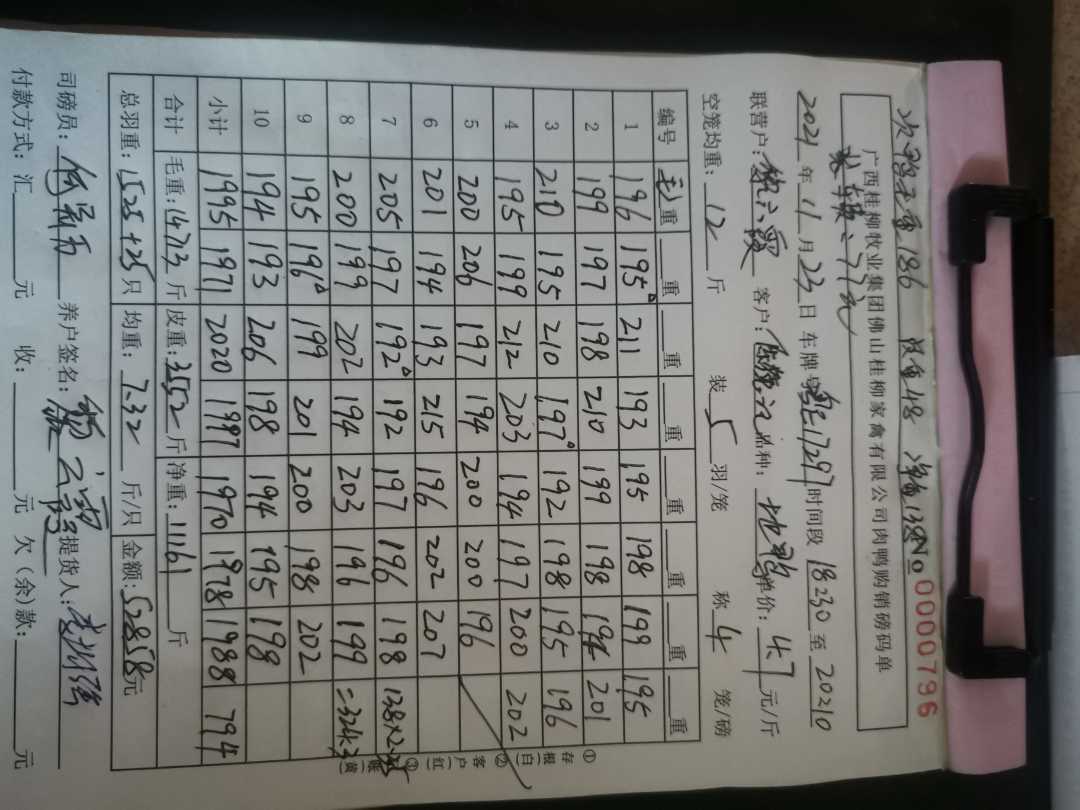 次鸭毛重186 皮重48 净重138
广西桂柳牧业集团佛山桂柳家禽有限公司肉鸭购销磅码单
No 0000796
2021年11月23日 车牌 时间段 18230至20210
联营户： 客户： 品种： 单价：4.7元/斤
空笼均重：12斤 装5羽/笼 称4笼/磅
编号 毛重 重 重 重 重 重 重 重
1 196 195 211 193 195 198 199 195
2 199 197 198 210 199 198 194 201
3 210 195 210 197 192 198 195 196
4 195 199 212 203 194 197 200 202
5 200 206 197 194 200 200 196
6 201 194 193 215 196 202 207
7 205 197 192 192 197 196 198 138×2.35
8 200 199 202 194 203 196 199 =324.3
9 195 196 199 201 200 198 202
10 194 193 206 198 194 195 198
小计 1995 1971 2020 1997 1970 1978 1988 794
合计 毛重：14713斤 皮重：3552斤 净重：11161斤
总羽重：1525+25只 均重：7.32斤/只 金额：52858元
司磅员： 养户签名： 提货人：
付款方式：汇 元 收： 元 欠（余）款： 元
①存根（白）②客户（红）③（黄）